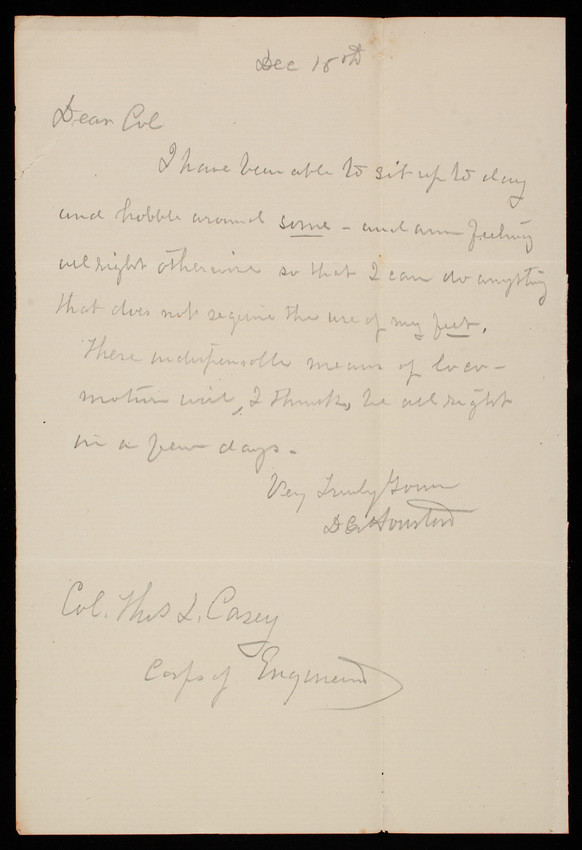 Dec 18th
Dear Col
I have been able to sit up to day
and hobble around some - and am feeling
all right otherwise so that I can do anything
that does not require the use of my feet.
These indispensable means of loco-
motion will, I think, be all right
in a few days.
Very Truly Yours
D C Houston
Col. Thos L. Casey
Corps of Engineers